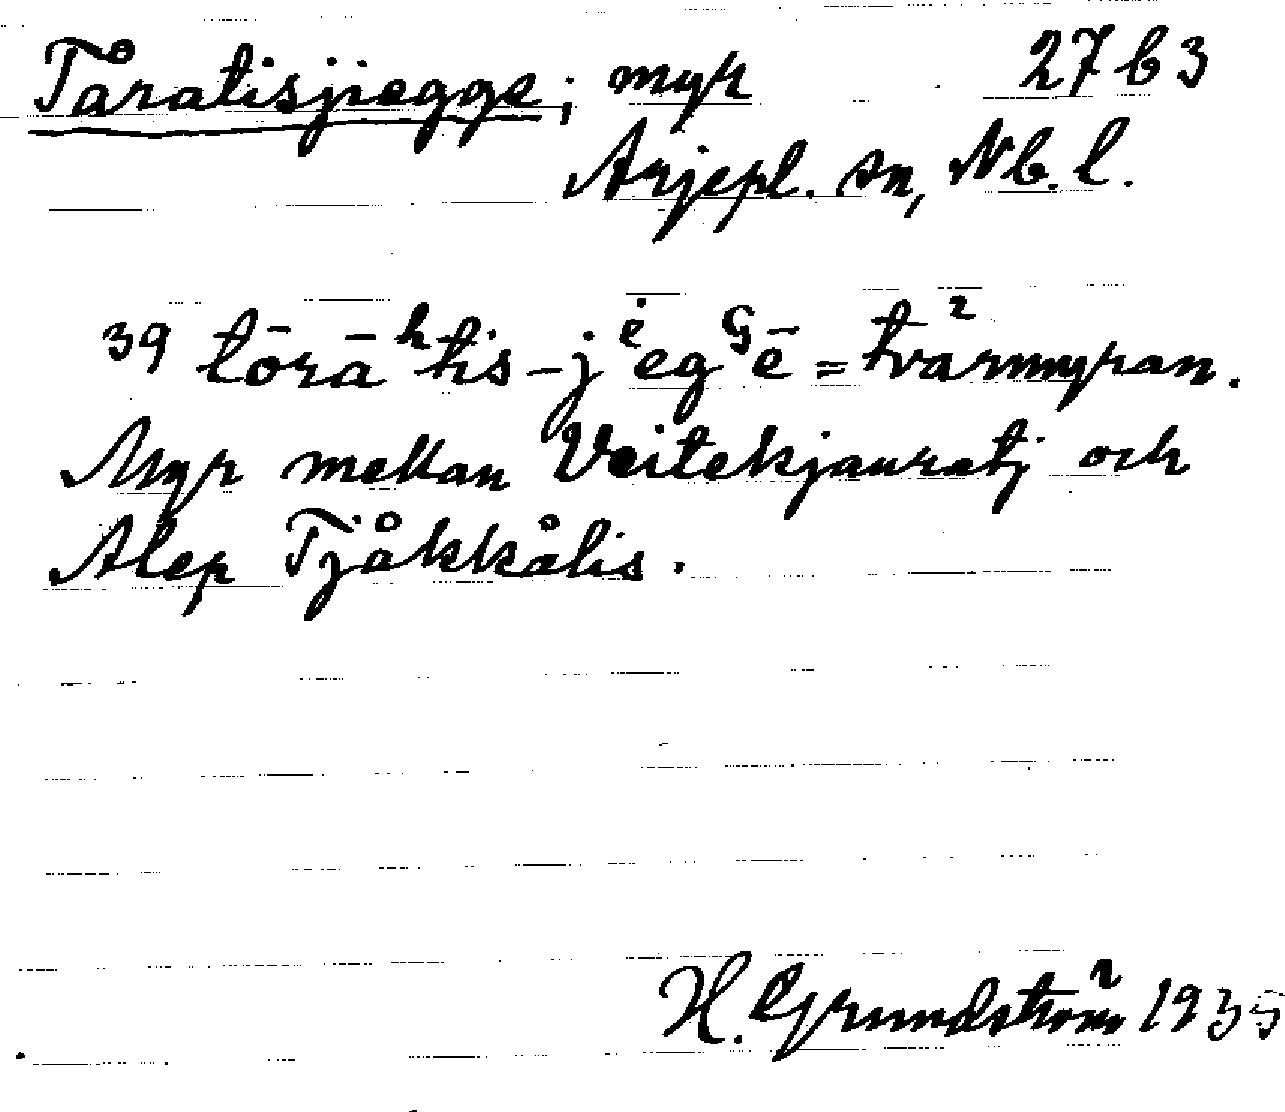 Tåratisjiegge; myr 27 b 3
Arjepl. sn, Nb. l.
39 tōrāʰtis-jᵉegᴳē = tvärmyran.
Myr mellan Veitekjauratj och
Alep Tjåkkålis.
H. Grundström 1935